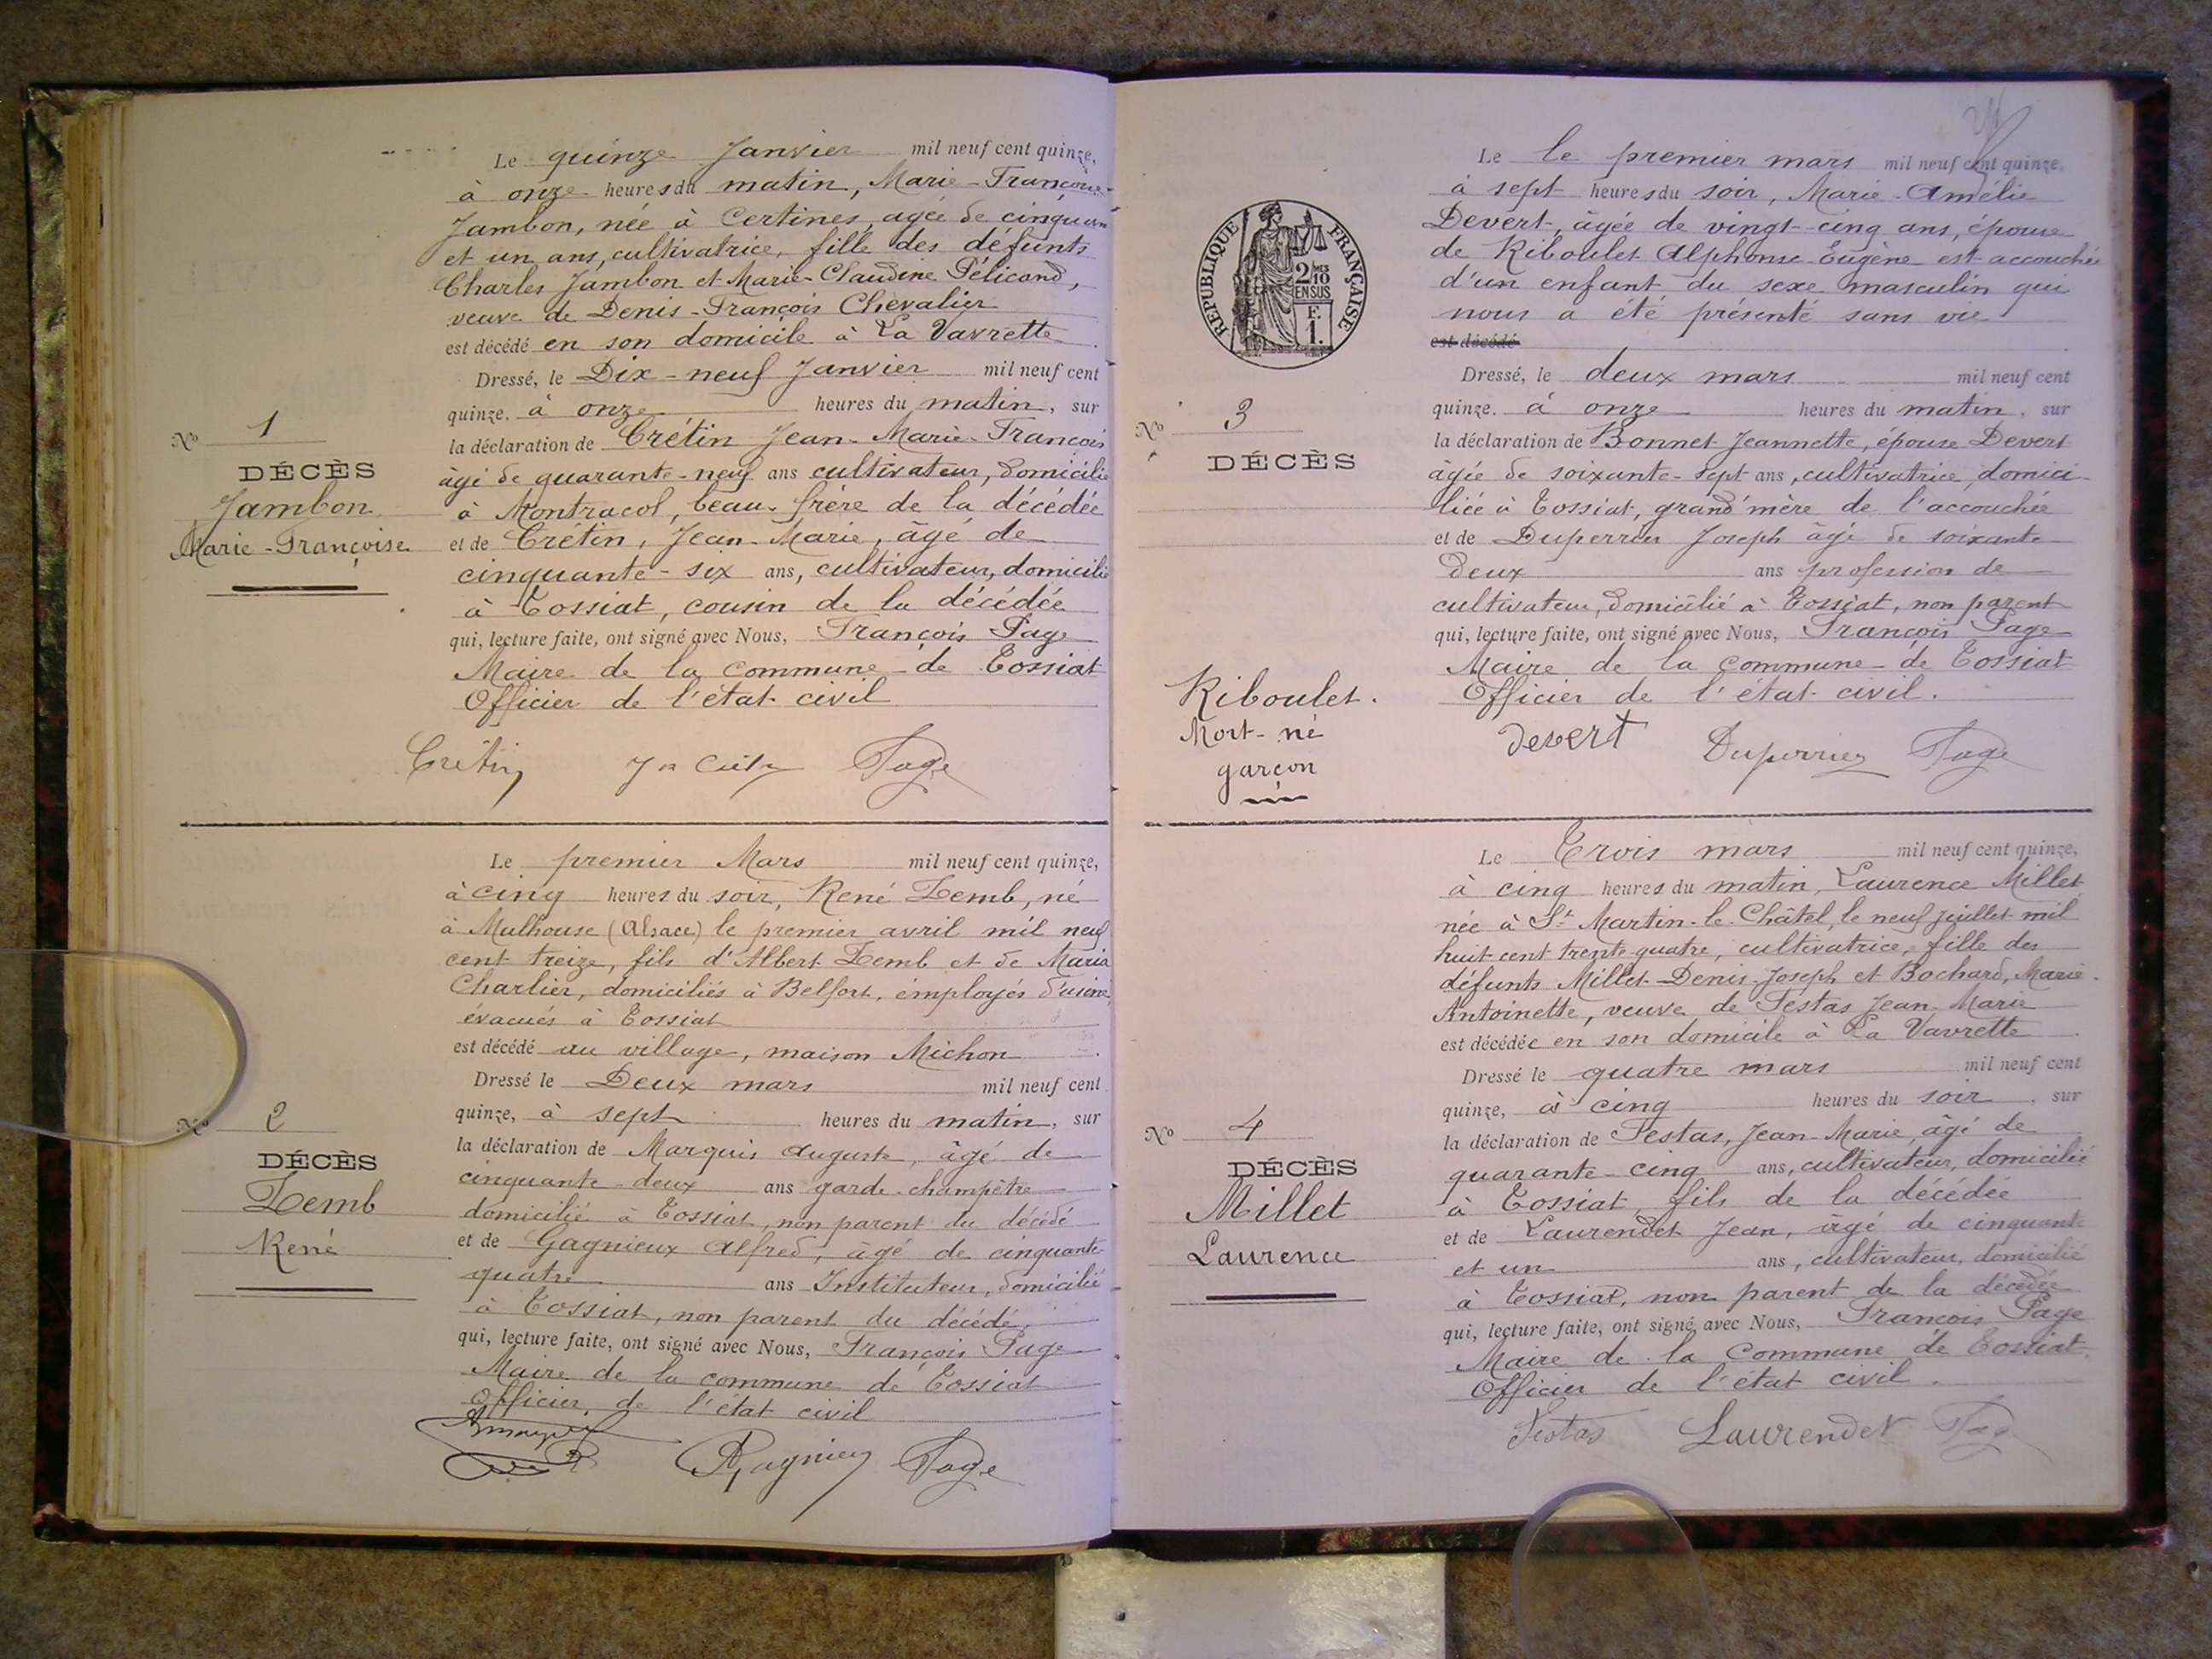 Le quinze Janvier mil neuf cent quinze,
à onze heures du matin, Marie-Françoise
Jambon, née à Certines, agée de cinquan
et un ans, cultivatrice, fille des défunts
Charles Jambon et Marie-Claudine Pélicand,
veuve de Denis-François Chevalier
est décédé en son domicile à La Vavrette
Dressé, le Dix-neuf Janvier mil neuf cent
quinze, à onze heures du matin, sur
la déclaration de Crétin Jean-Marie-François
âgé de quarante-neuf ans cultivateur, domicilié
à Montracol, beau-frère de la décédée
et de Crétin, Jean-Marie, âgé de
cinquante-six ans, cultivateur, domicilié
à Tossiat, cousin de la décédée
qui, lecture faite, ont signé avec Nous, François Page
Maire de la commune de Tossiat
Officier de l'état civil
Crétin Page
No 1
DÉCÈS
Jambon
Marie-Françoise
Le premier Mars mil neuf cent quinze,
à cinq heures du soir, René Zemb, né
à Mulhouse (Alsace) le premier avril mil neuf
cent treize, fils d'Albert Zemb et de Maria
Charlier, domiciliés à Belfort, employés d'usine,
évacués à Tossiat
est décédé au village, maison Michon
Dressé le Deux mars mil neuf cent
quinze, à sept heures du matin, sur
la déclaration de Marquis Auguste, âgé de
cinquante-deux ans garde-champêtre
domicilié à Tossiat, non parent du décédé
et de Gagnieux Alfred, âgé de cinquante-
quatre ans Instituteur, domicilié
à Tossiat, non parent du décédé,
qui, lecture faite, ont signé avec Nous, François Page
Maire de la commune de Tossiat
Officier de l'état civil
Page
No 2
DÉCÈS
Zemb
René
Le le premier mars mil neuf cent quinze,
à sept heures du soir, Marie-Amélie
Devert, âgée de vingt-cinq ans, épouse
de Riboulet Alphonse-Eugène est accouchée
d'un enfant du sexe masculin qui
nous a été présenté sans vie
est décédé
Dressé, le deux mars mil neuf cent
quinze, à onze heures du matin, sur
la déclaration de Bonnet Jeannette, épouse Devert
âgée de soixante-sept ans, cultivatrice, domici-
liée à Tossiat, grand'mère de l'accouchée
et de Duperrier Joseph âgé de soixante
deux ans profession de
cultivateur, domicilié à Tossiat, non parent
qui, lecture faite, ont signé avec Nous, François Page
Maire de la commune de Tossiat
Officier de l'état civil.
devert Duperrier Page
RÉPUBLIQUE FRANÇAISE
2/10 EN SUS
F. 1.
No 3
DÉCÈS
Riboulet.
Mort-né
garçon
Le Trois mars mil neuf cent quinze,
à cinq heures du matin, Laurence Millet
née à St Martin-le-Châtel, le neuf juillet mil
huit cent trente quatre, cultivatrice, fille des
défunts Millet Denis-Joseph et Bochard, Marie-
Antoinette, veuve de Festas Jean-Marie
est décédée en son domicile à La Vavrette
Dressé le quatre mars mil neuf cent
quinze, à cinq heures du soir, sur
la déclaration de Festas, Jean-Marie, âgé de
quarante-cinq ans, cultivateur, domicilié
à Tossiat, fils de la décédée
et de Laurendet Jean, âgé de cinquante
et un ans, cultivateur, domicilié
à Tossiat, non parent de la décédée
qui, lecture faite, ont signé avec Nous, François Page
Maire de la Commune de Tossiat
Officier de l'état civil.
Festas Laurendet Page
No 4
DÉCÈS
Millet
Laurence